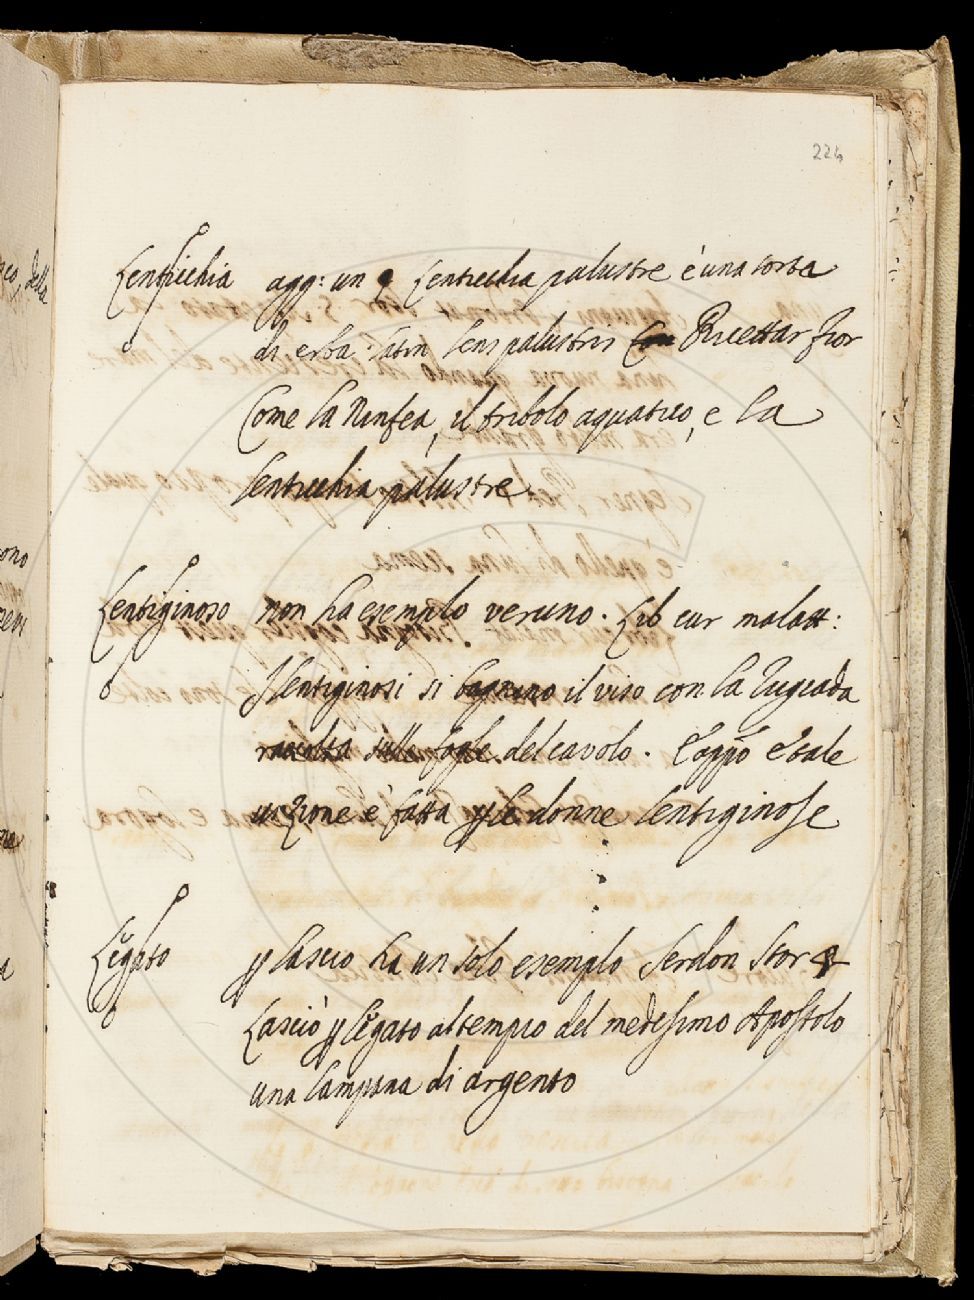 224
Lenticchia agg: un q Lenticchia palustre è una sorta
di erba. latin lens palustris Ricettar Fior
Come la Ninfea, il tribolo aquatico, e la
lenticchia palustre.
Lentiginoso non ha esemplo veruno. Lib cur malatt:
I lentiginosi si bagnino il viso con la rugiada
raccolta sulle foglie del cavolo. E appō E tale
unzione è fatta p le donne lentiginose
Legato p lascio ha un solo esemplo Serdon Stor
Lasciò p legato al tempio del medesimo Apostolo
una campana di argento